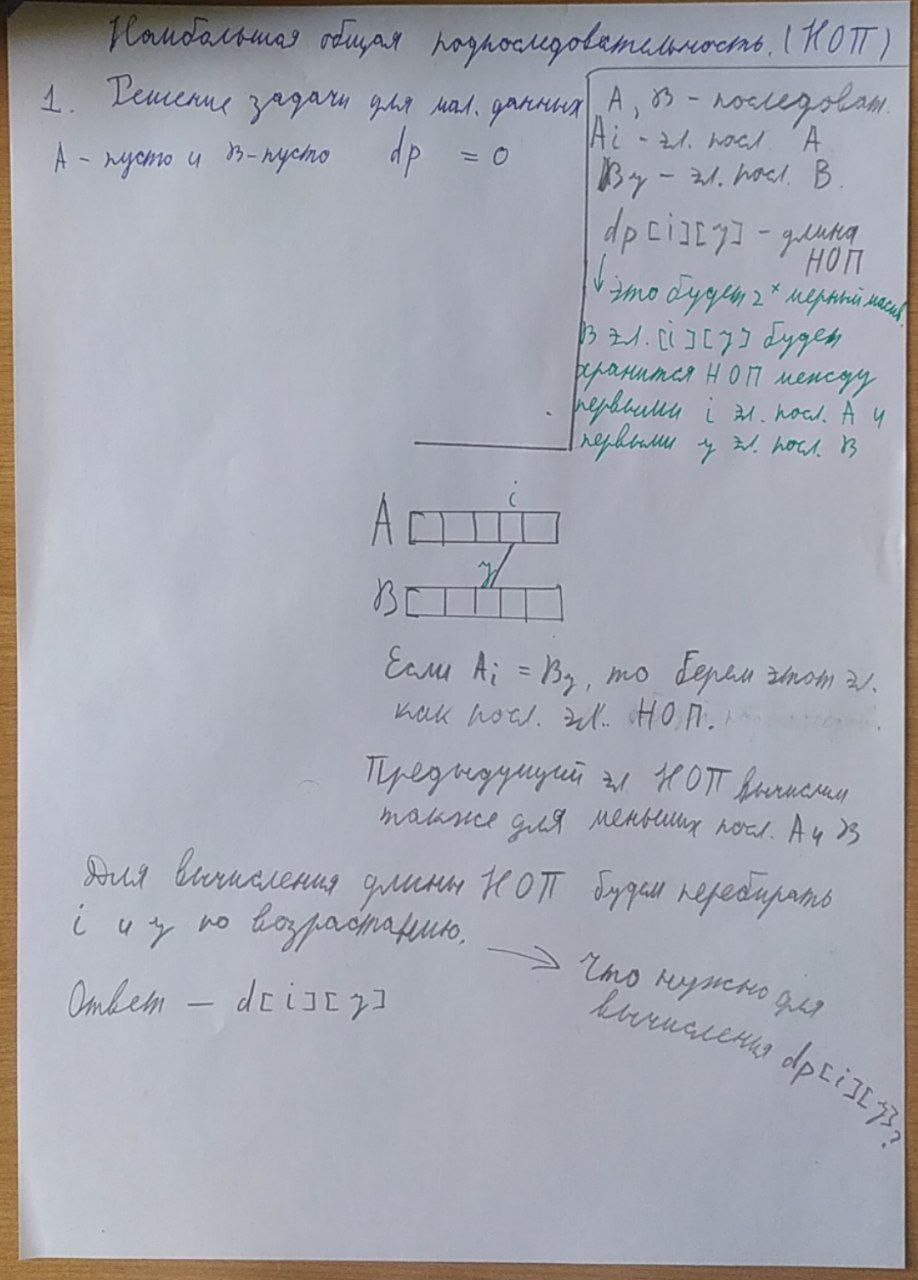 Наибольшая общая подпоследовательность. (НОП)
1. Решение задачи для мал. данных
А - пусто и В - пусто dp = 0
А, В - последоват.
Ai - эл. посл. А
By - эл. посл. В.
dp[i][y] - длина
НОП
↓ это будет 2х мерный масив.
В эл. [i][y] будет
хранится НОП между
первыми i эл. посл. А и
первыми y эл. посл. В
i
А
y
В
Если Ai = By, то берем этот эл.
как посл. эл. НОП.
Предыдущий эл. НОП вычислим
также для меньших посл. А и В
Для вычисления длины НОП будем перебирать
i и y по возрастанию.
→ Что нужно для
вычисления dp[i][y]?
Ответ — d[i][y]